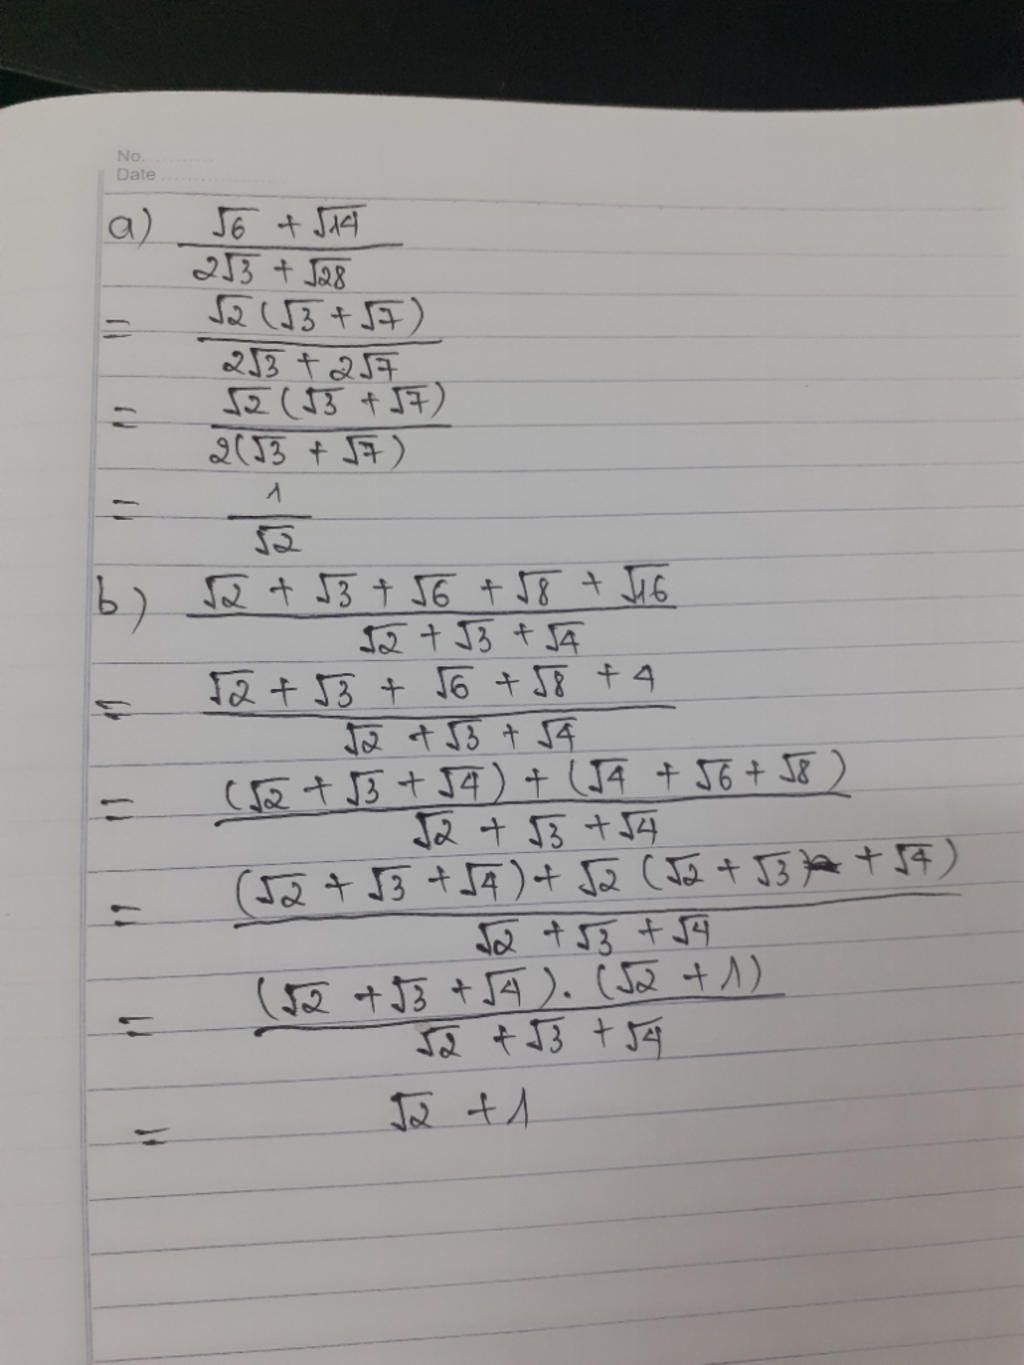 No.
Date
a) (√6 + √14)/(2√3 + √28)
= (√2(√3 + √7))/(2√3 + 2√7)
= (√2(√3 + √7))/(2(√3 + √7))
= 1/√2
b) (√2 + √3 + √6 + √8 + √16)/(√2 + √3 + √4)
= (√2 + √3 + √6 + √8 + 4)/(√2 + √3 + √4)
= ((√2 + √3 + √4) + (√4 + √6 + √8))/(√2 + √3 + √4)
= ((√2 + √3 + √4) + √2(√2 + √3 + √4))/(√2 + √3 + √4)
= ((√2 + √3 + √4).(√2 + 1))/(√2 + √3 + √4)
= √2 + 1